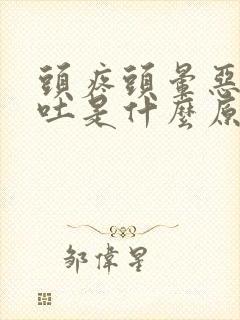 頭疼頭暈惡
吐是什麼原
鄒偉星